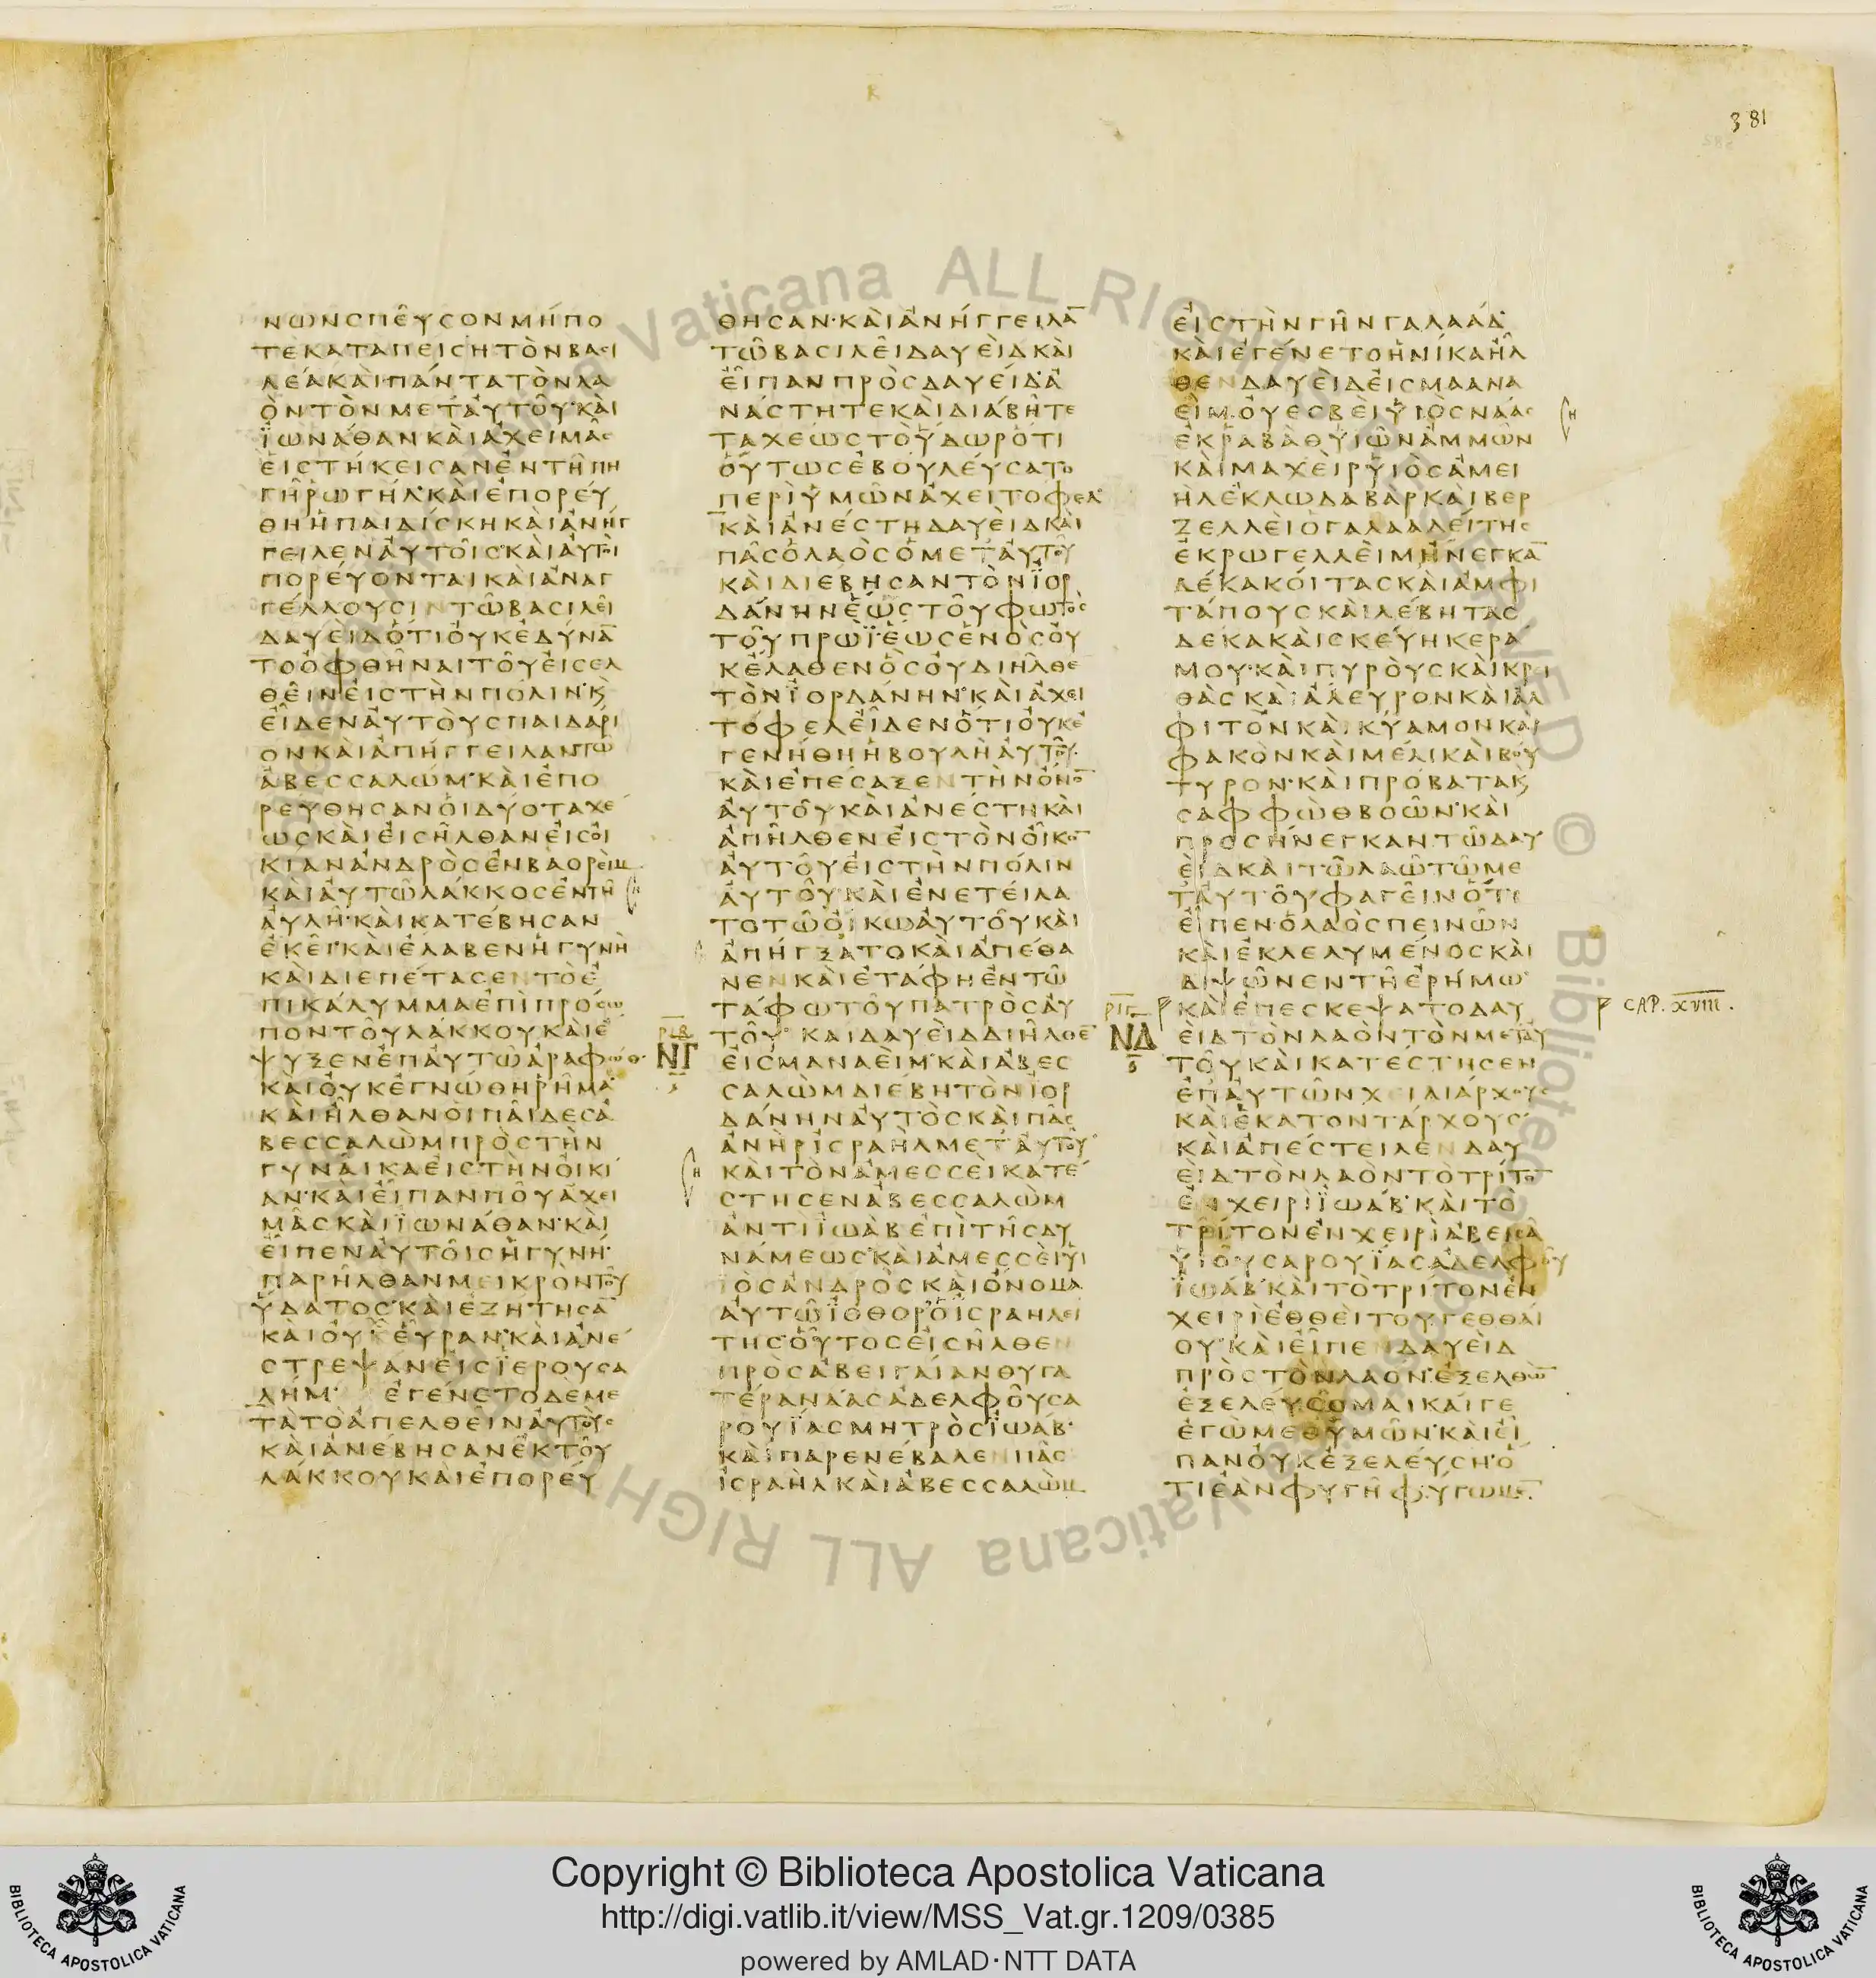 381
ΝΩΝΣΠΕΥΣΟΝΜΗΠΟ
ΤΕΚΑΤΑΠΕΙΣΗΤΟΝΒΑΣΙ
ΛΕΑΚΑΙΠΑΝΤΑΤΟΝΛΑ
ΟΝΤΟΝΜΕΤΑΥΤΟΥ·ΚΑΙ
ΪΩΝΑΘΑΝΚΑΙΑΧΕΙΜΑΣ
ΕΙΣΤΗΚΕΙΣΑΝΕΝΤΗΠΗ
ΓΗΡΩΓΗΛ·ΚΑΙΕΠΟΡΕΥ
ΘΗΗΠΑΙΔΙΣΚΗΚΑΙΑΝΗΓ
ΓΕΙΛΕΝΑΥΤΟΙΣ·ΚΑΙΑΥΤΟΙ
ΠΟΡΕΥΟΝΤΑΙΚΑΙΑΝΑΓ
ΓΕΛΛΟΥΣΙΝΤΩΒΑΣΙΛΕΙ
ΔΑΥΕΙΔΟΤΙΟΥΚΕΔΥΝΑ̅
ΤΟΟΦΘΗΝΑΙΤΟΥΕΙΣΕΛ
ΘΕΙΝΕΙΣΤΗΝΠΟΛΙΝ·Κ
ΕΙΔΕΝΑΥΤΟΥΣΠΑΙΔΑΡΙ
ΟΝΚΑΙΑΠΗΓΓΕΙΛΑΝΤΩ
ΑΒΕΣΣΑΛΩΜ·ΚΑΙΕΠΟ
ΡΕΥΘΗΣΑΝΟΙΔΥΟΤΑΧΕ
ΩΣΚΑΙΕΙΣΗΛΘΑΝΕΙΣΟΙ
ΚΙΑΝΑΝΔΡΟΣΕΝΒΑΟΡΕΙΜ
ΚΑΙΑΥΤΩΛΑΚΚΟΣΕΝΤΗ
ΑΥΛΗ·ΚΑΙΚΑΤΕΒΗΣΑΝ
ΕΚΕΙ·ΚΑΙΕΛΑΒΕΝΗΓΥΝΗ
ΚΑΙΔΙΕΠΕΤΑΣΕΝΤΟΕ
ΠΙΚΑΛΥΜΜΑΕΠΙΠΡΟΣΩ
ΠΟΝΤΟΥΛΑΚΚΟΥΚΑΙΕ
ΨΥΞΕΝΕΠΑΥΤΩΑΡΑΦΩΘ·
ΚΑΙΟΥΚΕΓΝΩΘΗΡΗΜΑ·
ΚΑΙΗΛΘΑΝΟΙΠΑΙΔΕΣΑ
ΒΕΣΣΑΛΩΜΠΡΟΣΤΗΝ
ΓΥΝΑΙΚΑΕΙΣΤΗΝΟΙΚΙ
ΑΝ·ΚΑΙΕΙΠΑΝΠΟΥΑΧΕΙ
ΜΑΣΚΑΙΪΩΝΑΘΑΝ·ΚΑΙ
ΕΙΠΕΝΑΥΤΟΙΣΗΓΥΝΗ·
ΠΑΡΗΛΘΑΝΜΕΙΚΡΟΝΤΟΥ
ΫΔΑΤΟΣ·ΚΑΙΕΖΗΤΗΣΑ̅
ΚΑΙΟΥΧΕΥΡΑΝ·ΚΑΙΑΝΕ
ΣΤΡΕΨΑΝΕΙΣΪΕΡΟΥΣΑ
ΛΗΜ· ΕΓΕΝΕΤΟΔΕΜΕ
ΤΑΤΟΑΠΕΛΘΕΙΝΑΥΤΟΥΣ
ΚΑΙΑΝΕΒΗΣΑΝΕΚΤΟΥ
ΛΑΚΚΟΥΚΑΙΕΠΟΡΕΥ
ΘΗΣΑΝ·ΚΑΙΑΝΗΓΓΕΙΛΑ̅
ΤΩΒΑΣΙΛΕΙΔΑΥΕΙΔΚΑΙ
ΕΙΠΑΝΠΡΟΣΔΑΥΕΙΔ·Α
ΝΑΣΤΗΤΕΚΑΙΔΙΑΒΗΤΕ
ΤΑΧΕΩΣΤΟΫΔΩΡΟΤΙ
ΟΥΤΩΣΕΒΟΥΛΕΥΣΑΤΟ
ΠΕΡΙΫΜΩΝΑΧΕΙΤΟΦΕΛ·
ΚΑΙΑΝΕΣΤΗΔΑΥΕΙΔΚΑΙ
ΠΑΣΟΛΑΟΣΟΜΕΤΑΥΤΟΥ
ΚΑΙΔΙΕΒΗΣΑΝΤΟΝΪΟΡ
ΔΑΝΗΝΕΩΣΤΟΥΦΩΤΟΣ
ΤΟΥΠΡΩΪ·ΕΩΣΕΝΟΣΟΥ
ΚΕΛΑΘΕΝΟΣΟΥΔΙΗΛΘΕ
ΤΟΝΪΟΡΔΑΝΗΝ·ΚΑΙΑΧΕΙ
ΤΟΦΕΛΕΙΔΕΝΟΤΙΟΥΚΕ
ΓΕΝΗΘΗΗΒΟΥΛΗΑΥΤΟΥ·
ΚΑΙΕΠΕΣΑΞΕΝΤΗΝΟΝΟ̅
ΑΥΤΟΥΚΑΙΑΝΕΣΤΗΚΑΙ
ΑΠΗΛΘΕΝΕΙΣΤΟΝΟΙΚΟ̅
ΑΥΤΟΥΕΙΣΤΗΝΠΟΛΙΝ
ΑΥΤΟΥ·ΚΑΙΕΝΕΤΕΙΛΑ
ΤΟΤΩΟΙΚΩΑΥΤΟΥΚΑΙ
ΑΠΗΓΞΑΤΟΚΑΙΑΠΕΘΑ
ΝΕΝΚΑΙΕΤΑΦΗΕΝΤΩ
ΤΑΦΩΤΟΥΠΑΤΡΟΣΑΥ
ΡΙΒ
ΝΓ
ΤΟΥ· ΚΑΙΔΑΥΕΙΔΔΙΗΛΘΕ̅
ΕΙΣΜΑΝΑΕΙΜ·ΚΑΙΑΒΕΣ
ΣΑΛΩΜΔΙΕΒΗΤΟΝΪΟΡ
ΔΑΝΗΝΑΥΤΟΣΚΑΙΠΑΣ
ΑΝΗΡΙΣΡΑΗΛΜΕΤΑΥΤΟΥ·
ΚΑΙΤΟΝΑΜΕΣΣΕΙΚΑΤΕ
ΣΤΗΣΕΝΑΒΕΣΣΑΛΩΜ
ΑΝΤΙΪΩΑΒΕΠΙΤΗΣΔΥ
ΝΑΜΕΩΣ·ΚΑΙΑΜΕΣΣΕΙΫΙ
ΟΣΑΝΔΡΟΣΚΑΙΟΝΟΜΑ
ΑΥΤΩΪΟΘΟΡΟΪΣΡΑΗΛΕΙ
ΤΗΣΟΥΤΟΣΕΙΣΗΛΘΕΝ
ΠΡΟΣΑΒΕΙΓΑΙΑΝΘΥΓΑ
ΤΕΡΑΝΑΑΣΑΔΕΛΦΟΥΣΑ
ΡΟΥΪΑΣΜΗΤΡΟΣΪΩΑΒ·
ΚΑΙΠΑΡΕΝΕΒΑΛΕΝΠΑΣ
ΙΣΡΑΗΛΚΑΙΑΒΕΣΣΑΛΩΜ
ΕΙΣΤΗΝΓΗΝΓΑΛΑΑΔ·
ΚΑΙΕΓΕΝΕΤΟΗΝΙΚΑΗΛ
ΘΕΝΔΑΥΕΙΔΕΙΣΜΑΑΝΑ
ΕΙΜ·ΟΥΕΣΒΕΙΫΙΟΣΝΑΑΣ
ΕΚΡΑΒΑΘΫΙΩΝΑΜΜΩΝ
ΚΑΙΜΑΧΕΙΡΫΙΟΣΑΜΕΙ
ΗΛΕΚΛΩΔΑΒΑΡΚΑΙΒΕΡ
ΖΕΛΛΕΙΟΓΑΛΑΑΔΕΙΤΗΣ
ΕΚΡΩΓΕΛΛΕΙΜΗΝΕΓΚΑ̅
ΔΕΚΑΚΟΙΤΑΣΚΑΙΑΜΦΙ
ΤΑΠΟΥΣΚΑΙΛΕΒΗΤΑΣ
ΔΕΚΑΚΑΙΣΚΕΥΗΚΕΡΑ
ΜΟΥ·ΚΑΙΠΥΡΟΥΣΚΑΙΚΡΙ
ΘΑΣΚΑΙΑΛΕΥΡΟΝΚΑΙΑΛ
ΦΙΤΟΝΚΑΙΚΥΑΜΟΝΚΑΙ
ΦΑΚΟΝΚΑΙΜΕΛΙΚΑΙΒΟΥ
ΤΥΡΟΝ·ΚΑΙΠΡΟΒΑΤΑΚ
ΣΑΦΦΩΘΒΟΩΝ·ΚΑΙ
ΠΡΟΣΗΝΕΓΚΑΝΤΩΔΑΥ
ΕΙΔΚΑΙΤΩΛΑΩΤΩΜΕ
ΤΑΥΤΟΥΦΑΓΕΙΝΟΤΙ
ΕΙΠΕΝ·ΟΛΑΟΣΠΕΙΝΩΝ
ΚΑΙΕΚΛΕΛΥΜΕΝΟΣΚΑΙ
ΔΙΨΩΝΕΝΤΗΕΡΗΜΩ·
ΡΙΓ
ΝΔ
ΚΑΙΕΠΕΣΚΕΨΑΤΟΔΑΥ
CAP. XVIII.
ΕΙΔΤΟΝΛΑΟΝΤΟΝΜΕΤΑΥ
ΤΟΥΚΑΙΚΑΤΕΣΤΗΣΕΝ
ΕΠΑΥΤΩΝΧΕΙΛΙΑΡΧΟΥΣ
ΚΑΙΕΚΑΤΟΝΤΑΡΧΟΥΣ·
ΚΑΙΑΠΕΣΤΕΙΛΕΝΔΑΥ
ΕΙΔΤΟΝΛΑΟΝΤΟΤΡΙΤΟ̅
ΕΝΧΕΙΡΙΪΩΑΒ·ΚΑΙΤΟ
ΤΡΙΤΟΝΕΝΧΕΙΡΙΑΒΕΙΣΑ
ΫΙΟΥΣΑΡΟΥΪΑΣΑΔΕΛΦΟΥ
ΪΩΑΒ·ΚΑΙΤΟΤΡΙΤΟΝΕΝ
ΧΕΙΡΙΕΘΘΕΙΤΟΥΓΕΘΘΑΙ
ΟΥ·ΚΑΙΕΙΠΕΝΔΑΥΕΙΔ
ΠΡΟΣΤΟΝΛΑΟΝ·ΕΞΕΛΘΩ̅
ΕΞΕΛΕΥΣΟΜΑΙΚΑΙΓΕ
ΕΓΩΜΕΘΥΜΩΝ·ΚΑΙΕΙ
ΠΑΝΟΥΚΕΞΕΛΕΥΣΗ·Ο
ΤΙΕΑΝΦΥΓΗΦΥΓΩΜΕ̅
Copyright © Biblioteca Apostolica Vaticana
http://digi.vatlib.it/view/MSS_Vat.gr.1209/0385
powered by AMLAD·NTT DATA
BIBLIOTECA APOSTOLICA VATICANA
BIBLIOTECA APOSTOLICA VATICANA